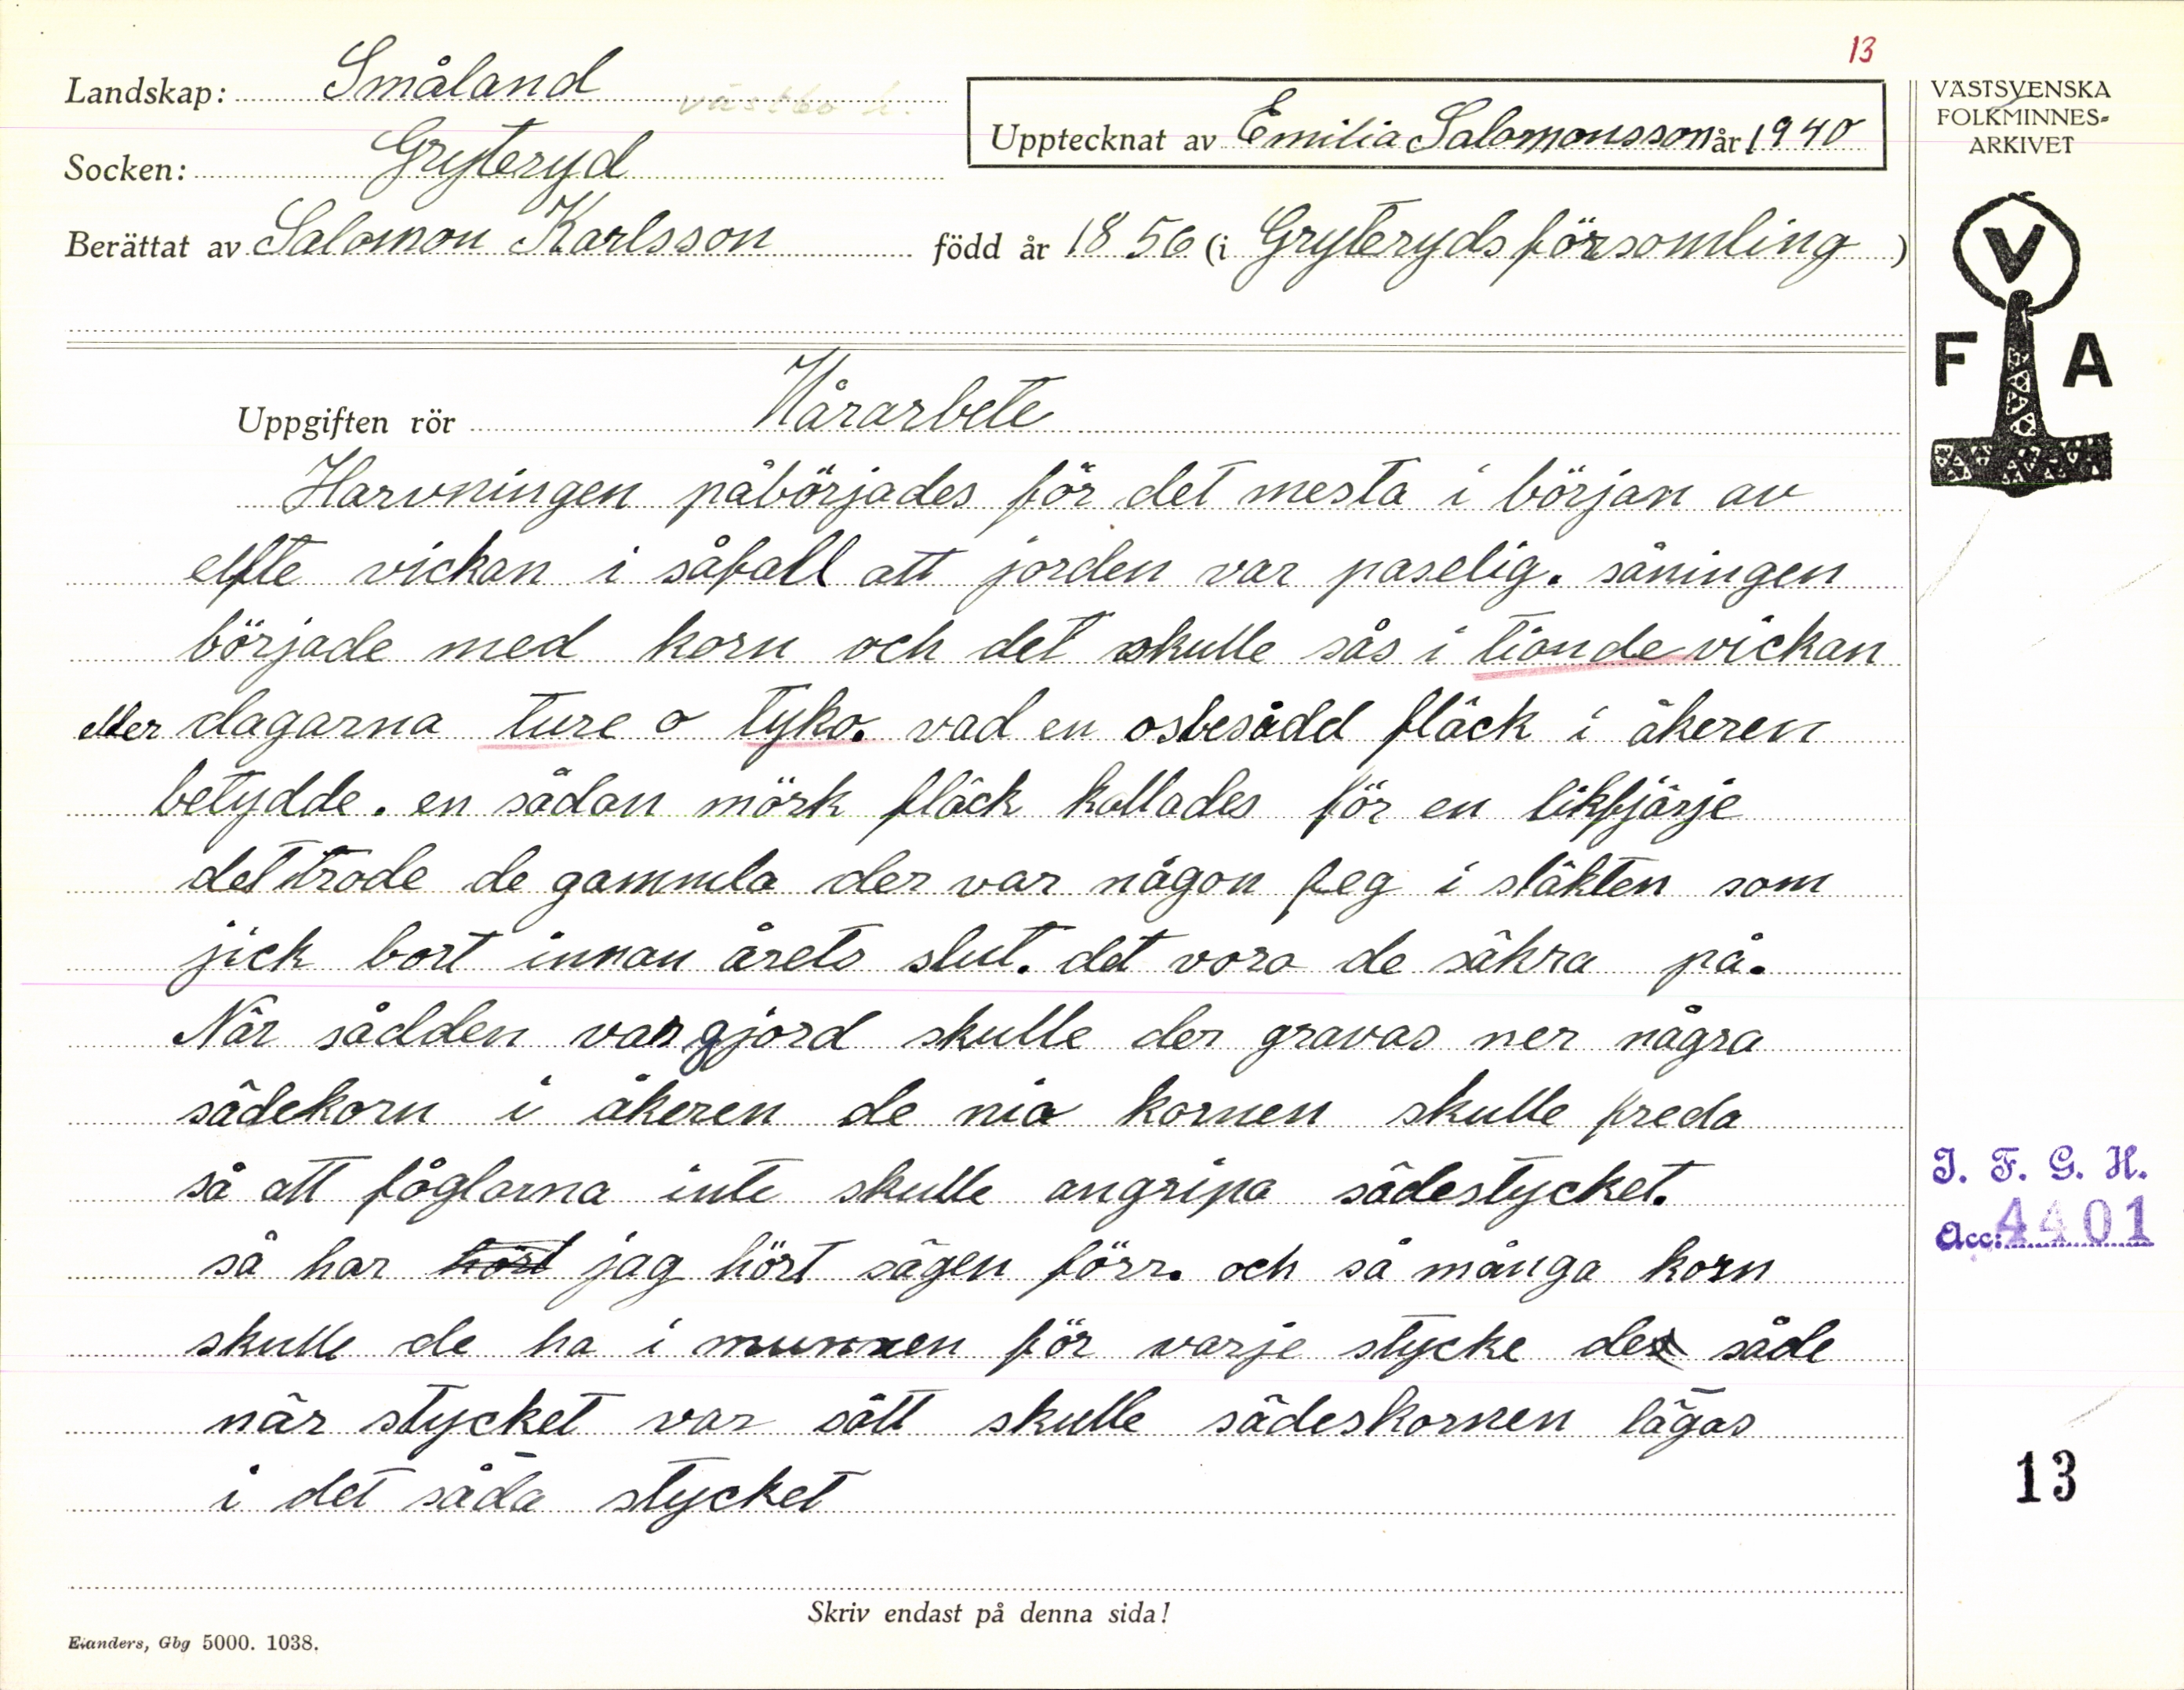 13
Landskap: Småland västbo h.
Upptecknat av Emilia Salomonsson år 1940
Socken: Gryteryd
Berättat av Salomon Karlsson född år 1856 (i Gryteryds församling)
VÄSTSVENSKA
FOLKMINNES=
ARKIVET
V
F A
Uppgiften rör Vårarbete
Harvningen påbörjades för det mesta i början av
elfte vickan i såfall att jorden var paselig. såningen
började med korn och det skulle sås i tionde vickan
eller dagarna ture o tyko. vad en osbesådd fläck i åkeren
betydde. en sådan mörk fläck kallades för en likfjärje
det trode de gammla der var någon feg i släkten som
jick bort innan årets slut. det vora de säkra på.
När sådden var gjord skulle der gravas ner några
sädekorn i åkeren de nia kornen skulle freda
så att fåglarna inte skulle angripa sädestycket.
så har hört jag hört sägen förr. och så många korn
skulle de ha i munnen för varje stycke de såde
när stycket var sått skulle sädeskornen lägas
i det såda stycket
I. F. G. H.
Acc: 4401
13
Skriv endast på denna sida!
Elanders, Gbg 5000. 1038.